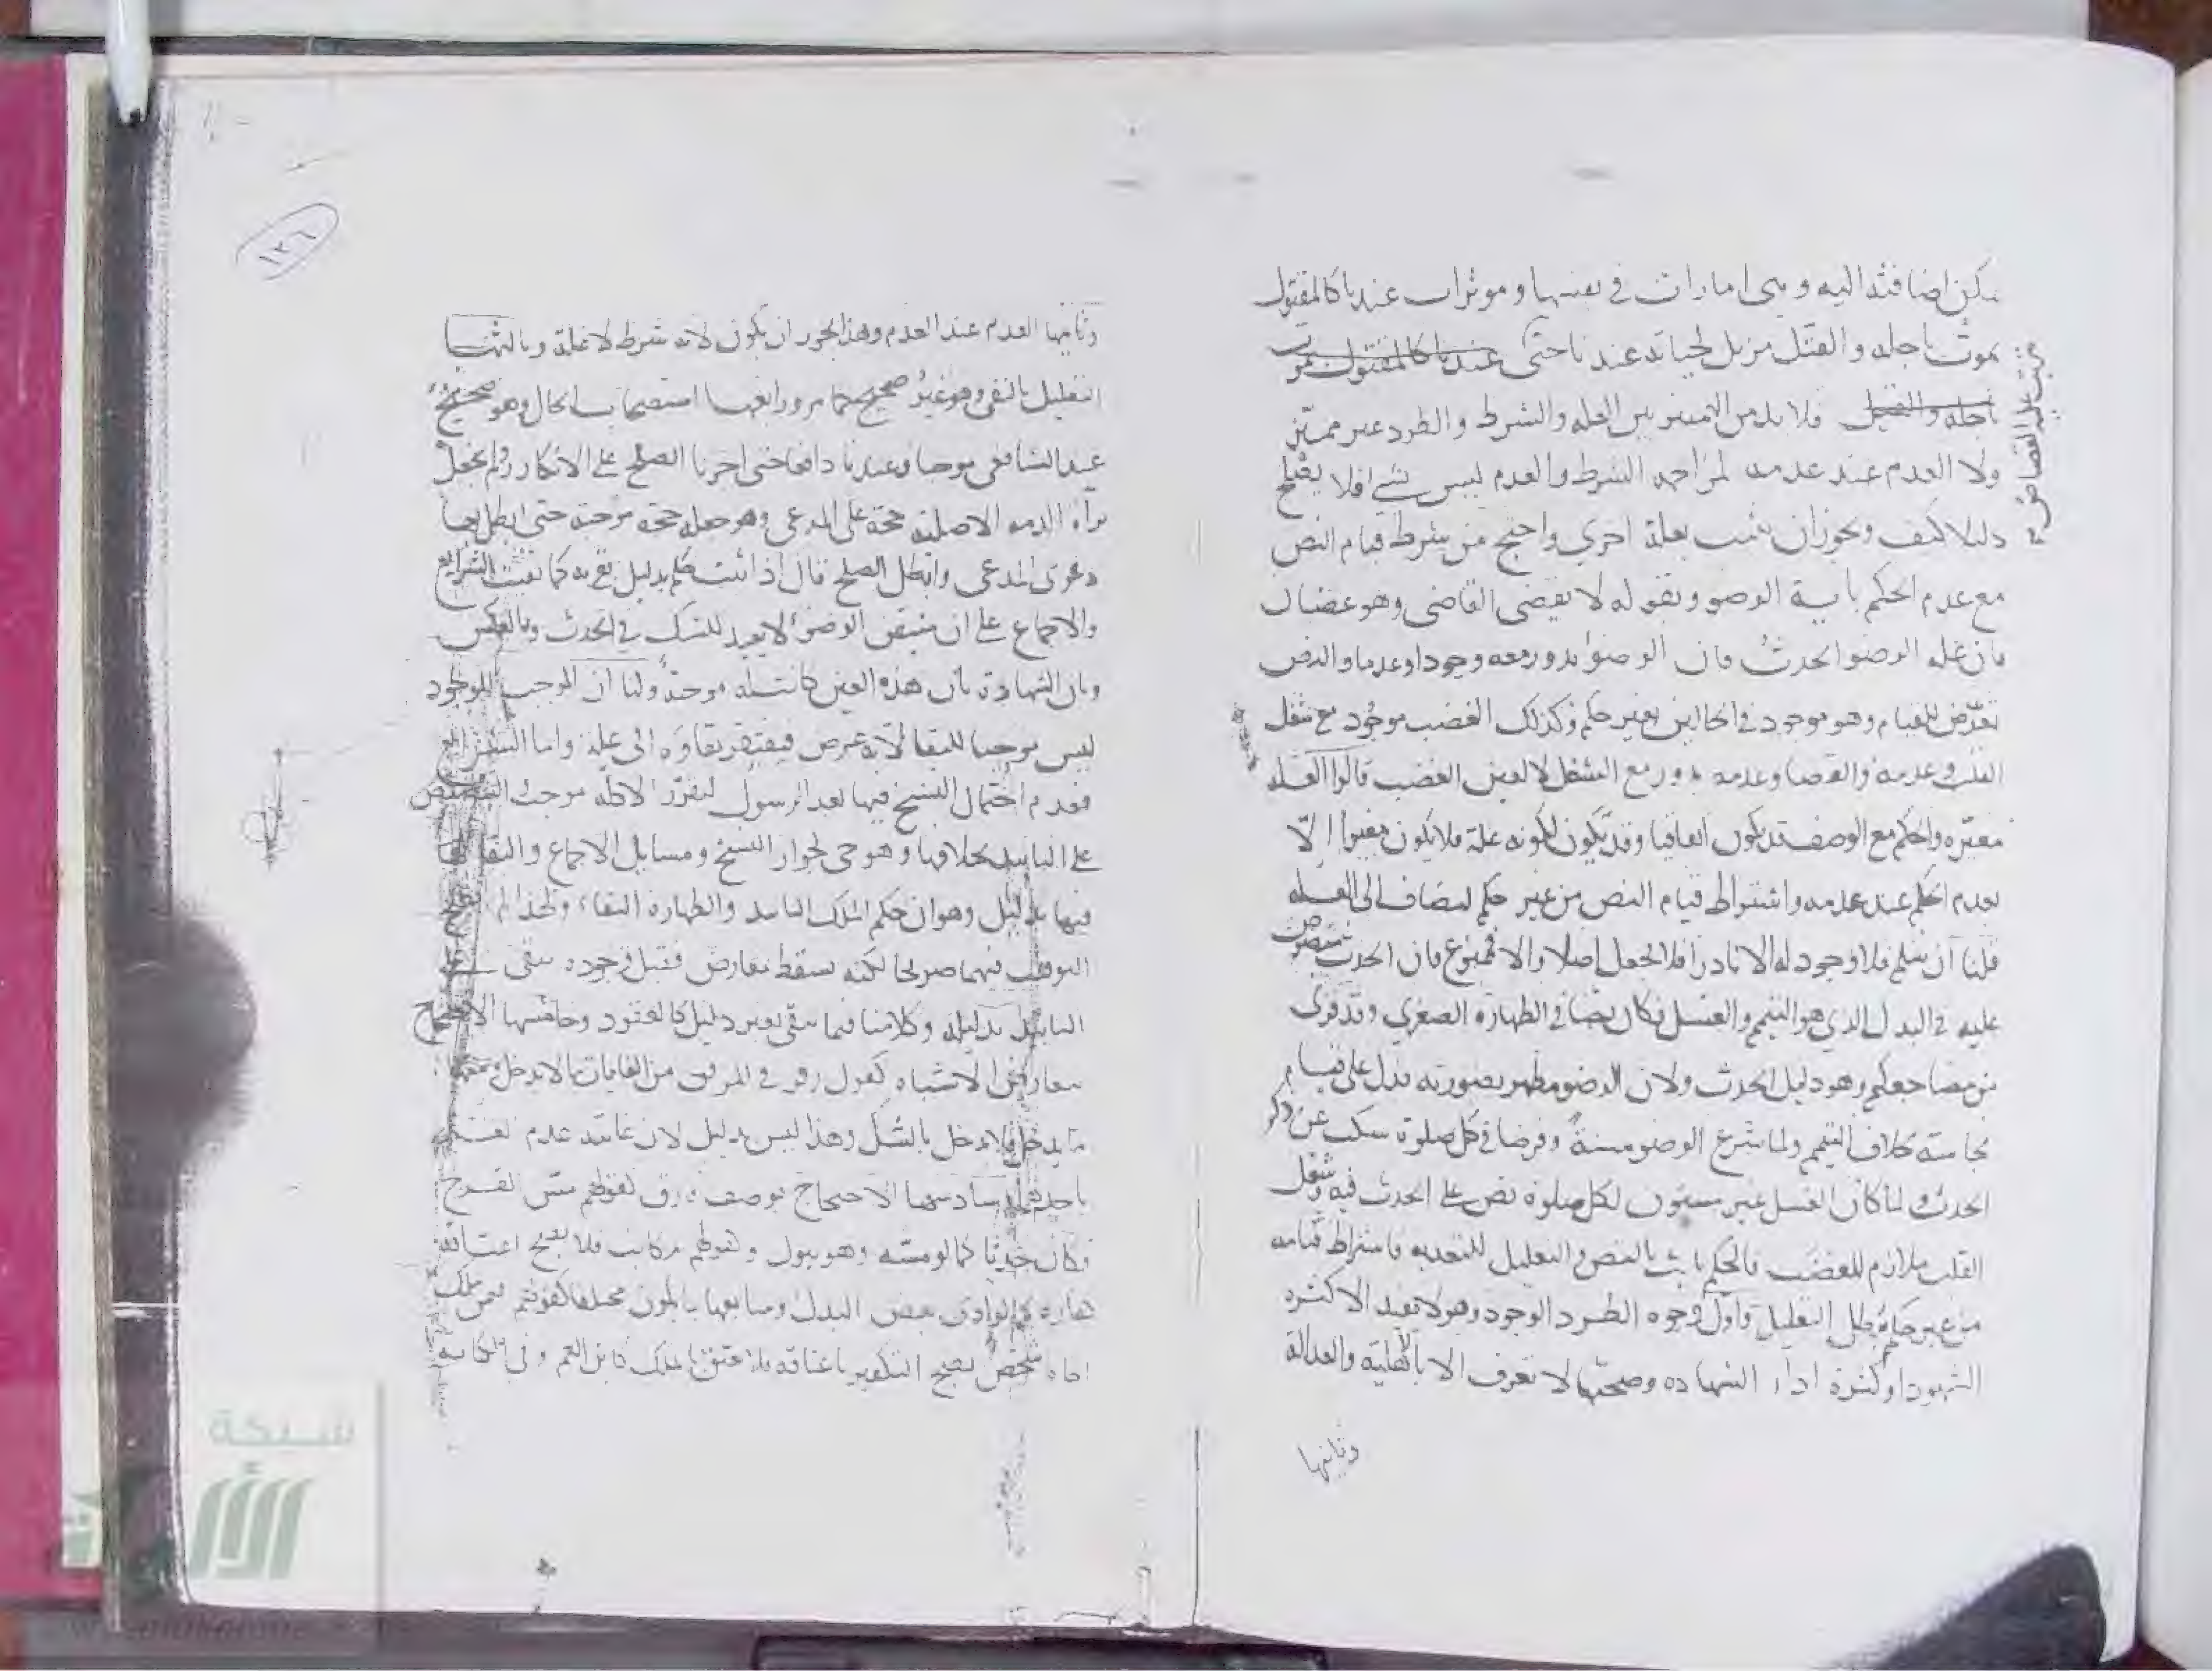 يمكن اضافته اليه وهي امارات في نفسها وموثرات عندنا كالمقتول
يموت باجله والقتل مزيل لحياته عندنا حتى عندنا كالمقتول يموت
باجله والقتل فلا بد من التمييز بين العله والشرط والطرد غير مميز
يجب عليه القصاص صح
ولا العدم عند عدمه لمزاحمه الشرط والعدم ليس بشي فلا يصلح
دليلا كيف ويجوز ان يثبت بعلة اخري واحتج من شرط قيام النص
مع عدم الحكم باية الوضو وبقوله لا يقضى القاضى وهو غضبان
فان عله الوضو الحدث فان الوضوء يدور معه وجودا وعدما والنص
تعرض للقيام وهو موجود في الحالين بغير حكم وكذلك الغضب موجود مع شغل
القلب وعدمه والقضا وعدمه يدور مع الشغل لا لعين الغضب قالوا العله
مغيره والحكم مع الوصف قد يكون اتفاقيا وقد يكون لكونه علة فلا يكون مغيرا الا
بعدم الحكم عند عدمه واشتراط قيام النص من غير حكم ليضاف الى العله
قلنا ان سلم فلا وجود له الا نادرا فلا يجعل اصلا والا فممنوع فان الحدث منصوص
عليه في البدل الذي هو التيمم والغسل فكان نصا في الطهاره الصغري وقد قرى
من مضاجعكم وهو دليل الحدث ولان الوضو مطهر بصورته فدل على قيام
نجاسته بخلاف التيمم ولما شرع الوضو سنة وفرضا في كل صلوة سكت عن ذكر
الحدث ولما كان الغسل غير مسنون لكل صلوة نص على الحدث فيه وشغل
القلب ملازم للغضب فالحكم ثابت بالنص والتعليل للتعديه فاشتراط قيامه
من غير حكم يبطل التعليل واول وجوه الطرد الوجود وهو لا يفيد الا كثره
الشهود او كثرة اداء الشهاده وصحتها لا تعرف الا بالاهلية والعدالة
وثانيها
١٣٦
وثانيها العدم عند العدم وهذا يجوز ان يكون لانه شرط لا علة وثالثها
التعليل بالنفى وهو غير صحيح كما مر ورابعها استصحاب الحال وهو صحيح
عند الشافعى موجبا وعندنا دافعا حتى اجزنا الصلح على الانكار ولم نجعل
براة الذمه الاصلية حجة على المدعى وهو جعله حجة موجبة حتى ابطل بها
دعوى المدعى وابطل الصلح قال اذا ثبت حكم بدليل بقى به كما بقيت الشرايع
والاجماع على ان متيقن الوضوء لا يعيد للشك في الحدث وبالعكس
وبان الشهادة بان هذه العين كانت له موجبة ولنا ان الموجب للوجود
ليس موجبا للبقا لانه عرض فيفتقر بقاوه الى علة واما الشرايع
فعدم احتمال النسخ فيها بعد الرسول لتقرر الادلة موجبة
على التابيد بخلافها وهو حى لجواز النسخ ومسايل الاجماع والبقا
فيها بدليل وهو ان حكم الملك التابيد والطهاره البقاء ولهذا لم يصح
التوقيت فيهما صريحا لكنه يسقط بمعارض فقبل وجوده يبقى
التابيد بدليله وكلامنا فيما بقى بغير دليل كالمفقود وخامسها الاحتجاج
بتعارض الاشباه كقول زفر في المرفق من الغايات ما لا يدخل ومنها
ما يدخل فلا يدخل بالشك وهذا ليس بدليل لان غايته عدم
باحدهما وسادسها الاحتجاج بوصف فارق كقولهم مس الفرج
فكان حدثا كما لو مسه وهو يبول وكقولهم مكاتب فلا يصح اعتاقه
كفاره كما لو ادى بعض البدل وسابعها بما يكون مختلفا كقولهم فيمن ملك
اخاه شخص يصح التكفير باعتاقه فلا يعتق بالملك كابن العم وفي الكتابة
شبكة